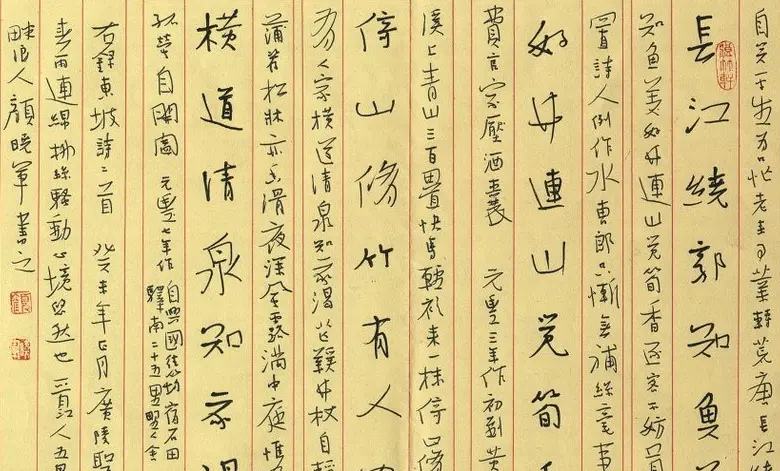 自笑平生为口忙老来事業轉荒唐長江繞
長江繞郭知魚
知魚美好竹連山覺筍香逐客不妨員
置詩人例作水曹郎只慚無補絲毫事
好竹連山覺筍
費官家壓酒囊 元豐三年作初到黃
溪上青山三百疊快馬輕衫来一抹倚山修
倚山修竹有人
有人家橫道清泉知我渴芒鞋竹杖自輕
蒲薦松牀亦香滑夜深風露滿中庭惟
橫道清泉知我渴
孤螢自開闔 元豐七年作 自興國往筠宿石田
驛南二十五里野人舍
右錄東坡詩二首 癸未年 月廣陵
春雨連綿柳絲騷動心境 然也 晉江人五
畔浪人顏曉軍書之